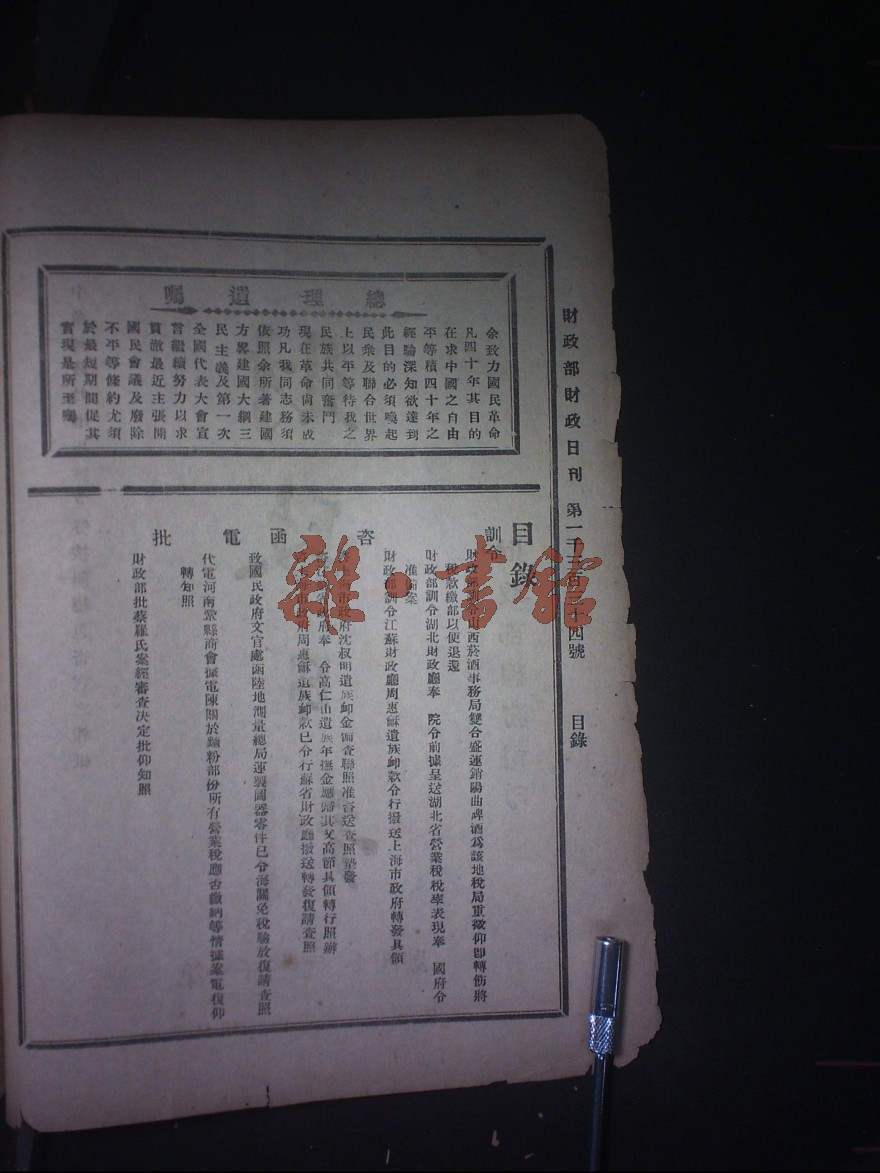 財政部財政日刊 第一千 百 十四號 目錄
總理遺囑
余致力國民革命
凡四十年其目的
在求中國之自由
平等積四十年之
經驗深知欲達到
此目的必須喚起
民衆及聯合世界
上以平等待我之
民族共同奮鬥
現在革命尚未成
功凡我同志務須
依照余所著建國
方畧建國大綱三
民主義及第一次
全國代表大會宣
言繼續努力以求
貫澈最近主張開
國民會議及廢除
不平等條約尤須
於最短期間促其
實現是所至囑
目錄
訓令
財政部訓令山西菸酒事務局雙合盛運銷陽曲啤酒爲該地稅局重徵仰即轉飭將
稅款繳部以便退還
財政部訓令湖北財政廳奉 院令前據呈送湖北省營業稅稅率表現奉 國府令
准備案
財政部訓令江蘇財政廳周惠穌遺族卹款令行撥送上海市政府轉發具領
咨
市政府沈叔明遺族卹金備查聯照准咨送查照墊發
政府奉 令高仁山遺族年撫金應歸其父高節具領轉行照辦
市政府周惠穌遺族卹款已令行蘇省財政廳撥送轉發復請查照
函
致國民政府文官處函陸地測量總局運製圖器零件已令海關免稅驗放復請查照
電
代電河南鞏縣商會據電陳關於麵粉部份所有營業稅應否繳納等情據案電復仰
轉知照
批
財政部批蔡羅氏案經審查決定批仰知照
雜·書館